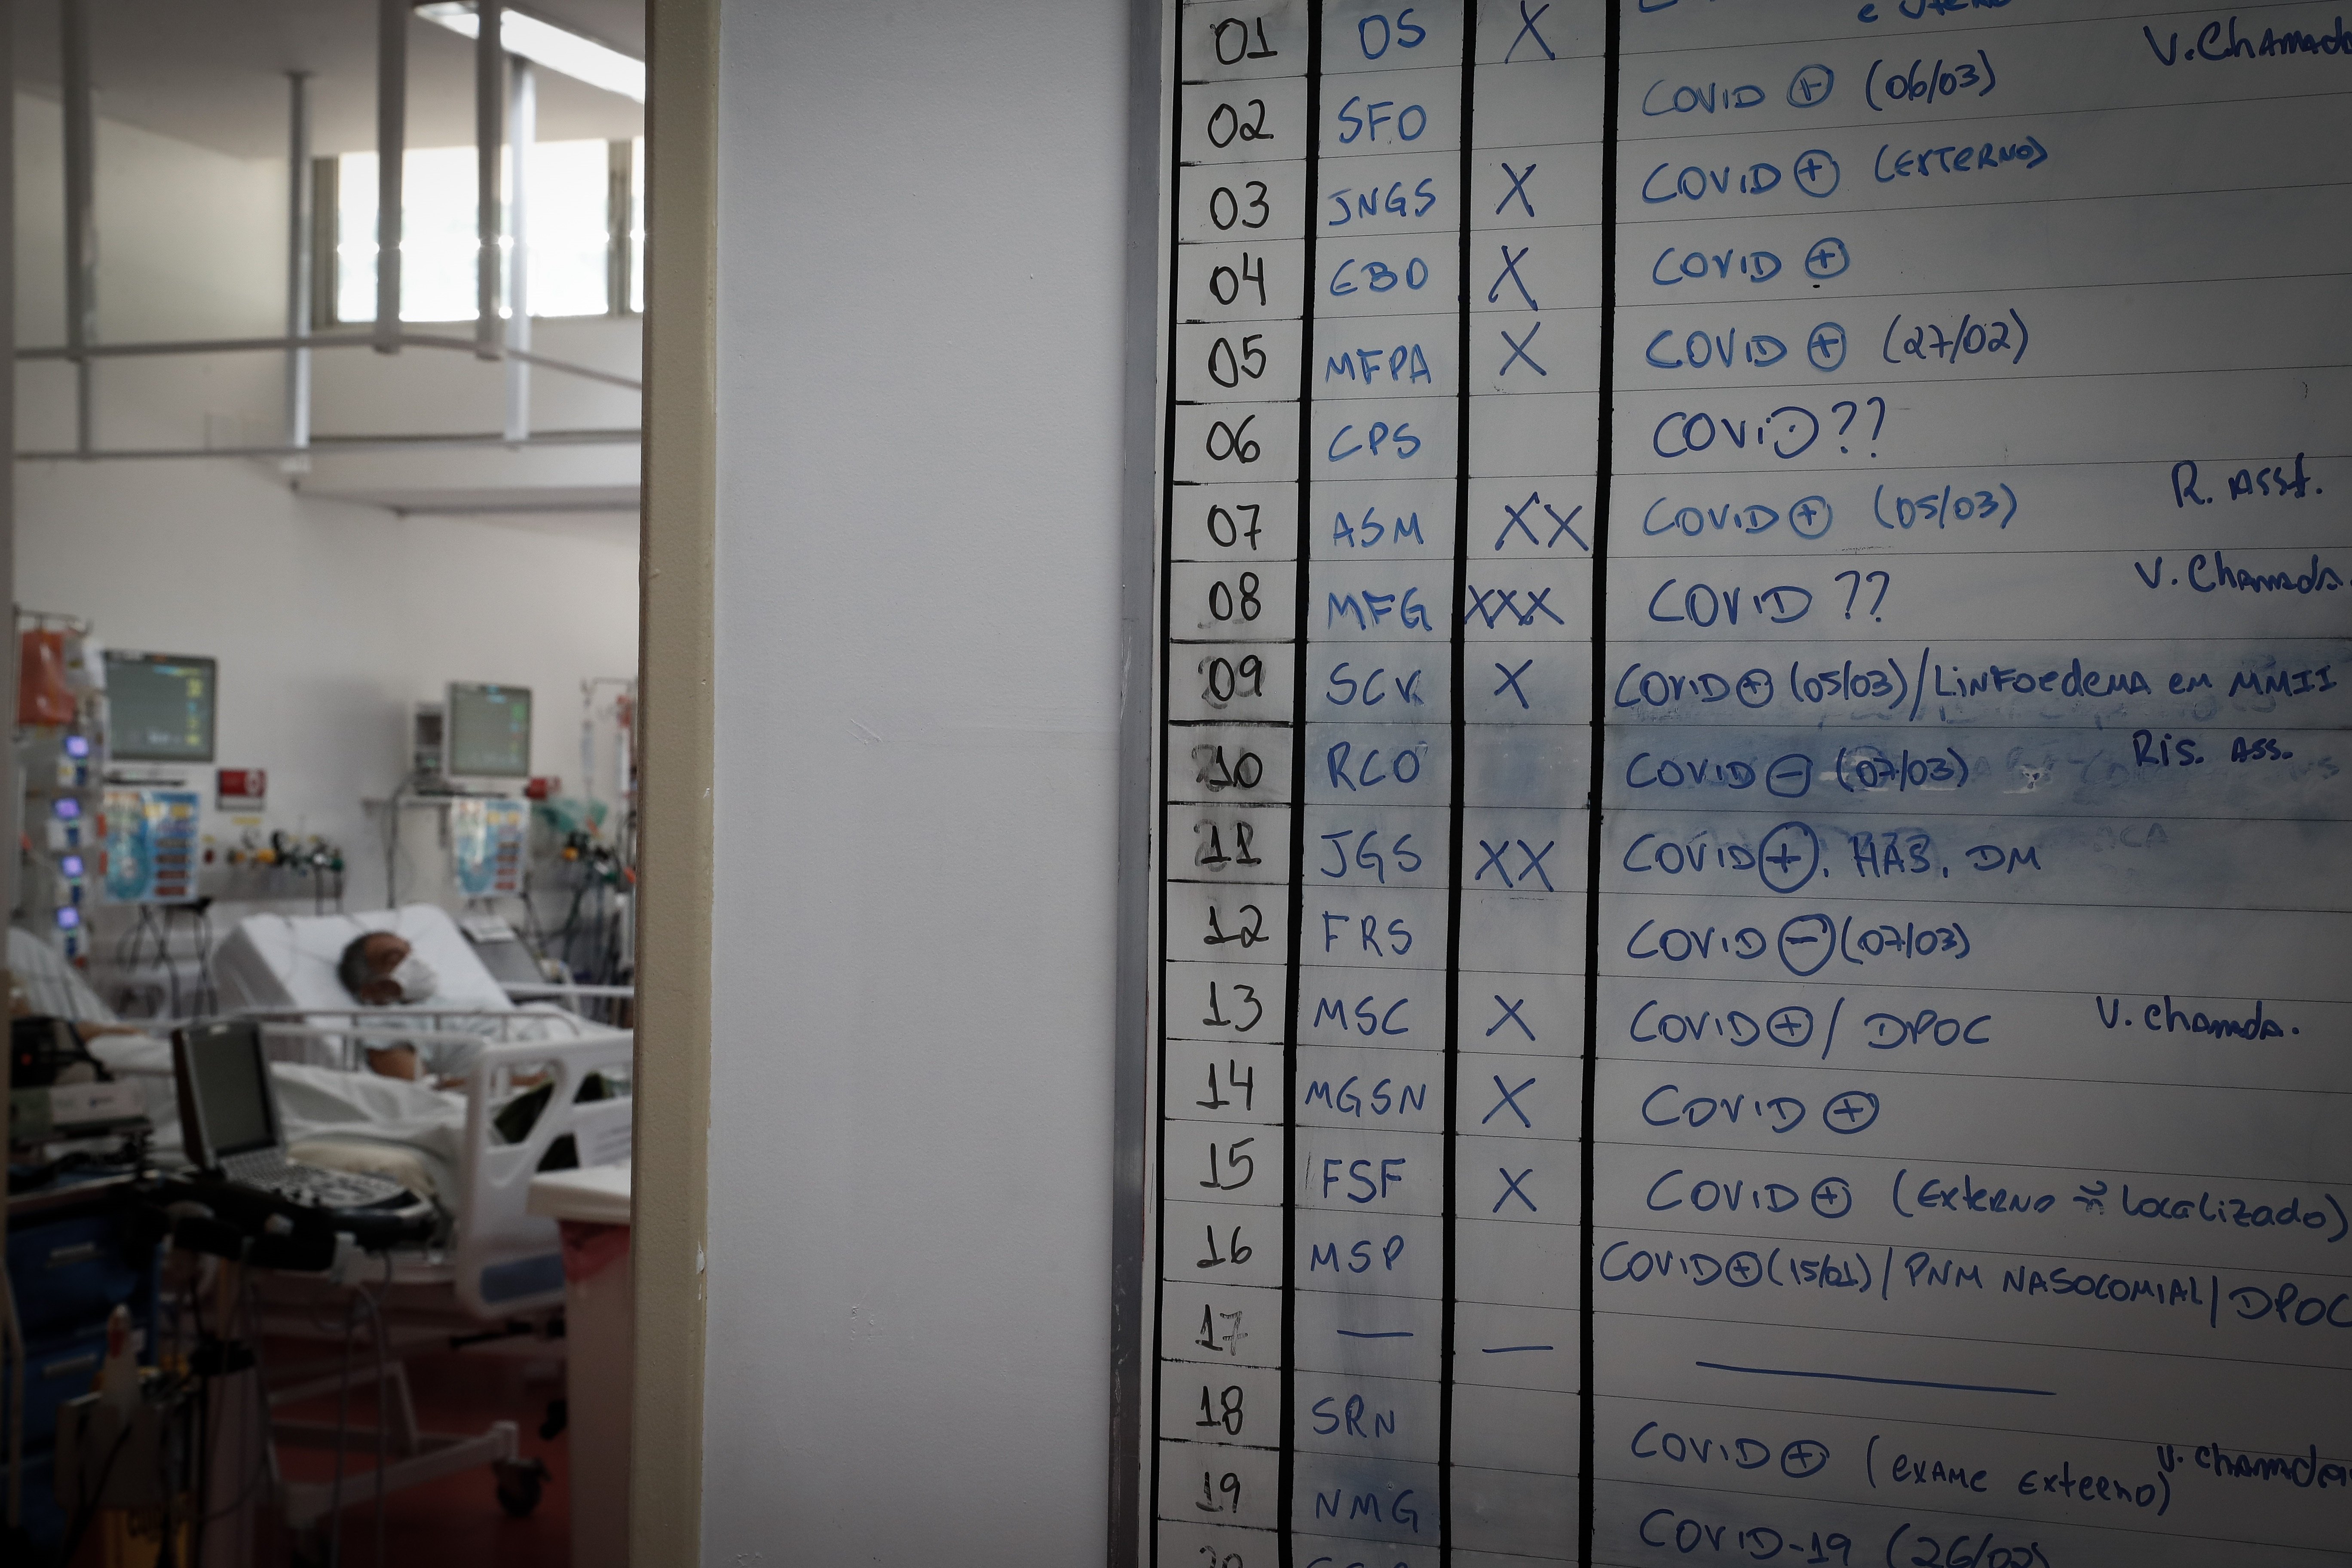 01 OS X e Utero V.Chamada
02 SFO COVID ⊕ (06/03)
03 JNGS X COVID ⊕ (EXTERNO)
04 EBO X COVID ⊕
05 MFPA X COVID ⊕ (27/02)
06 CPS COVID ??
07 ASM XX COVID ⊕ (05/03) R. Asst.
08 MFG XXX COVID ?? V. Chamada.
09 SCK X COVID ⊕ (05/03)/LINFOEDEMA EM MMII
10 RCO COVID ⊖ (07/03) Ris. Ass.
11 JGS XX COVID ⊕. HAS. DM
12 FRS COVID ⊖ (07/03)
13 MSC X COVID ⊕ / DPOC V. chamda.
14 MGSN X COVID ⊕
15 FSF X COVID ⊕ (Externo ñ localizado)
16 MSP COVID ⊕ (15/01) / PNM NASOCOMIAL / DPOC
17 — — —
18 SRN COVID ⊕ (EXAME EXTERNO) V. chamda
19 NMG COVID-19 (26/02)
20